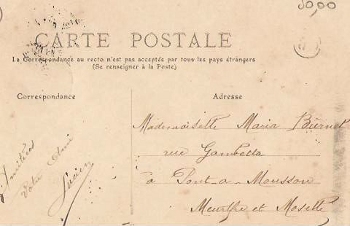 30,00
CARTE POSTALE
La Correspondance au recto n'est pas acceptée par tous les pays étrangers
(Se renseigner à la Poste.)
Correspondance
Adresse
Mademoiselle Maria Burnet
rue Gambetta
à Pont-a-Mousson
Meurthe et Moselle
Amitiés
Votre Ami
Lucien